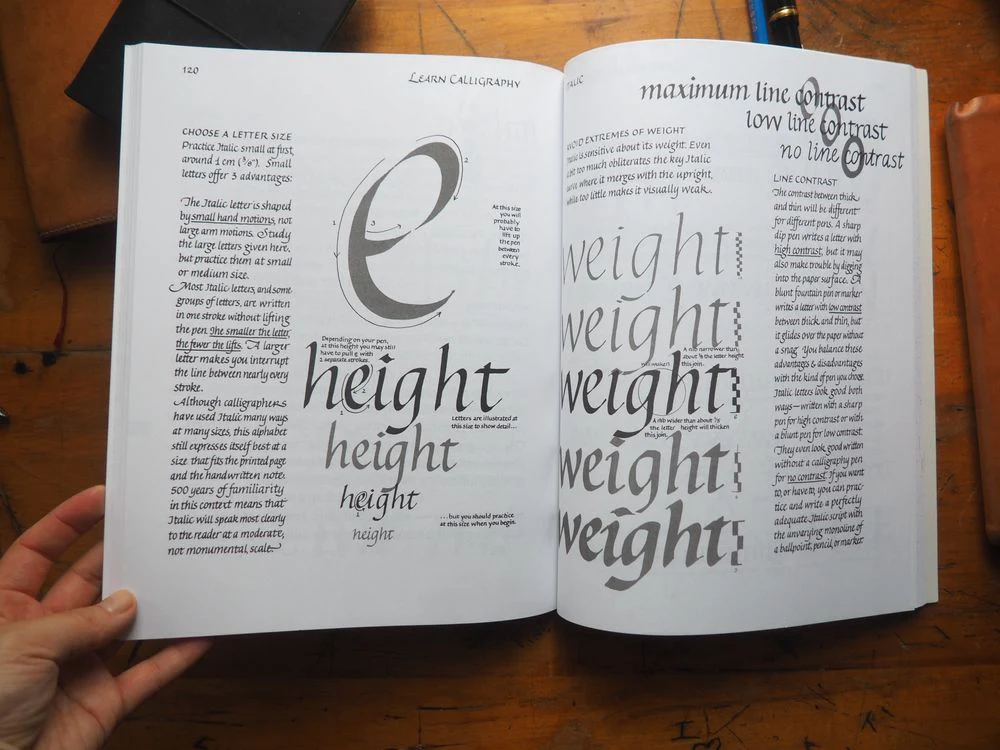 120
LEARN CALLIGRAPHY
CHOOSE A LETTER SIZE
Practice Italic small at first,
around 1 cm (3/8"). Small
letters offer 3 advantages:
The Italic letter is shaped
by small hand motions, not
large arm motions. Study
the large letters given here,
but practice them at small
or medium size.
Most Italic letters, and some
groups of letters, are written
in one stroke without lifting
the pen. The smaller the letter,
the fewer the lifts. A larger
letter makes you interrupt
the line between nearly every
stroke.
Although calligraphers
have used Italic many ways
at many sizes, this alphabet
still expresses itself best at a
size that fits the printed page
and the handwritten note.
500 years of familiarity
in this context means that
Italic will speak most clearly
to the reader at a moderate,
not monumental, scale.
e
1
2
3
At this size
you will
probably
have to
lift up
the pen
between
every
stroke.
Depending on your pen,
at this height you may still
have to pull e with
2 separate strokes.
height
Letters are illustrated at
this size to show detail...
height
height
...but you should practice
at this size when you begin.
height
ITALIC
maximum line contrast
low line contrast
no line contrast
AVOID EXTREMES OF WEIGHT
Italic is sensitive about its weight. Even
a bit too much obliterates the key Italic
curve where it merges with the upright,
while too little makes it visually weak.
weight
weight
A nib narrower than
about 1/8 the letter height
will weaken this join.
weight
A nib wider than about 1/5
the letter height will thicken
this join.
weight
weight
LINE CONTRAST
The contrast between thick
and thin will be different
for different pens. A sharp
dip pen writes a letter with
high contrast, but it may
also make trouble by digging
into the paper surface. A
blunt fountain pen or marker
writes a letter with low contrast
between thick and thin, but
it glides over the paper without
a snag. You balance these
advantages & disadvantages
with the kind of pen you choose.
Italic letters look good both
ways—written with a sharp
pen for high contrast or with
a blunt pen for low contrast.
They even look good written
without a calligraphy pen
for no contrast. If you want
to, or have to, you can prac-
tice and write a perfectly
adequate Italic script with
the unvarying monoline of
a ballpoint, pencil, or marker.